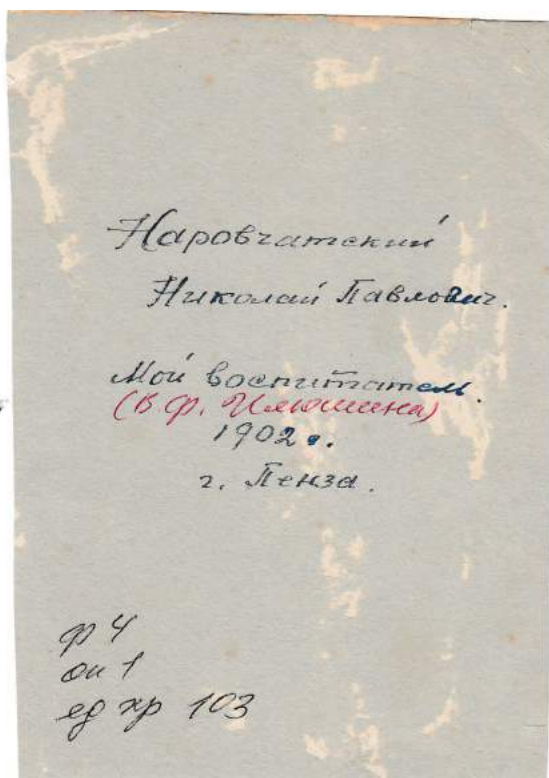 Наровчатский
Николай Павлович.
Мой воспитатель.
(В.Ф. Илюшина)
1902 г.
г. Пенза.
ф 4
оп 1
ед хр 103